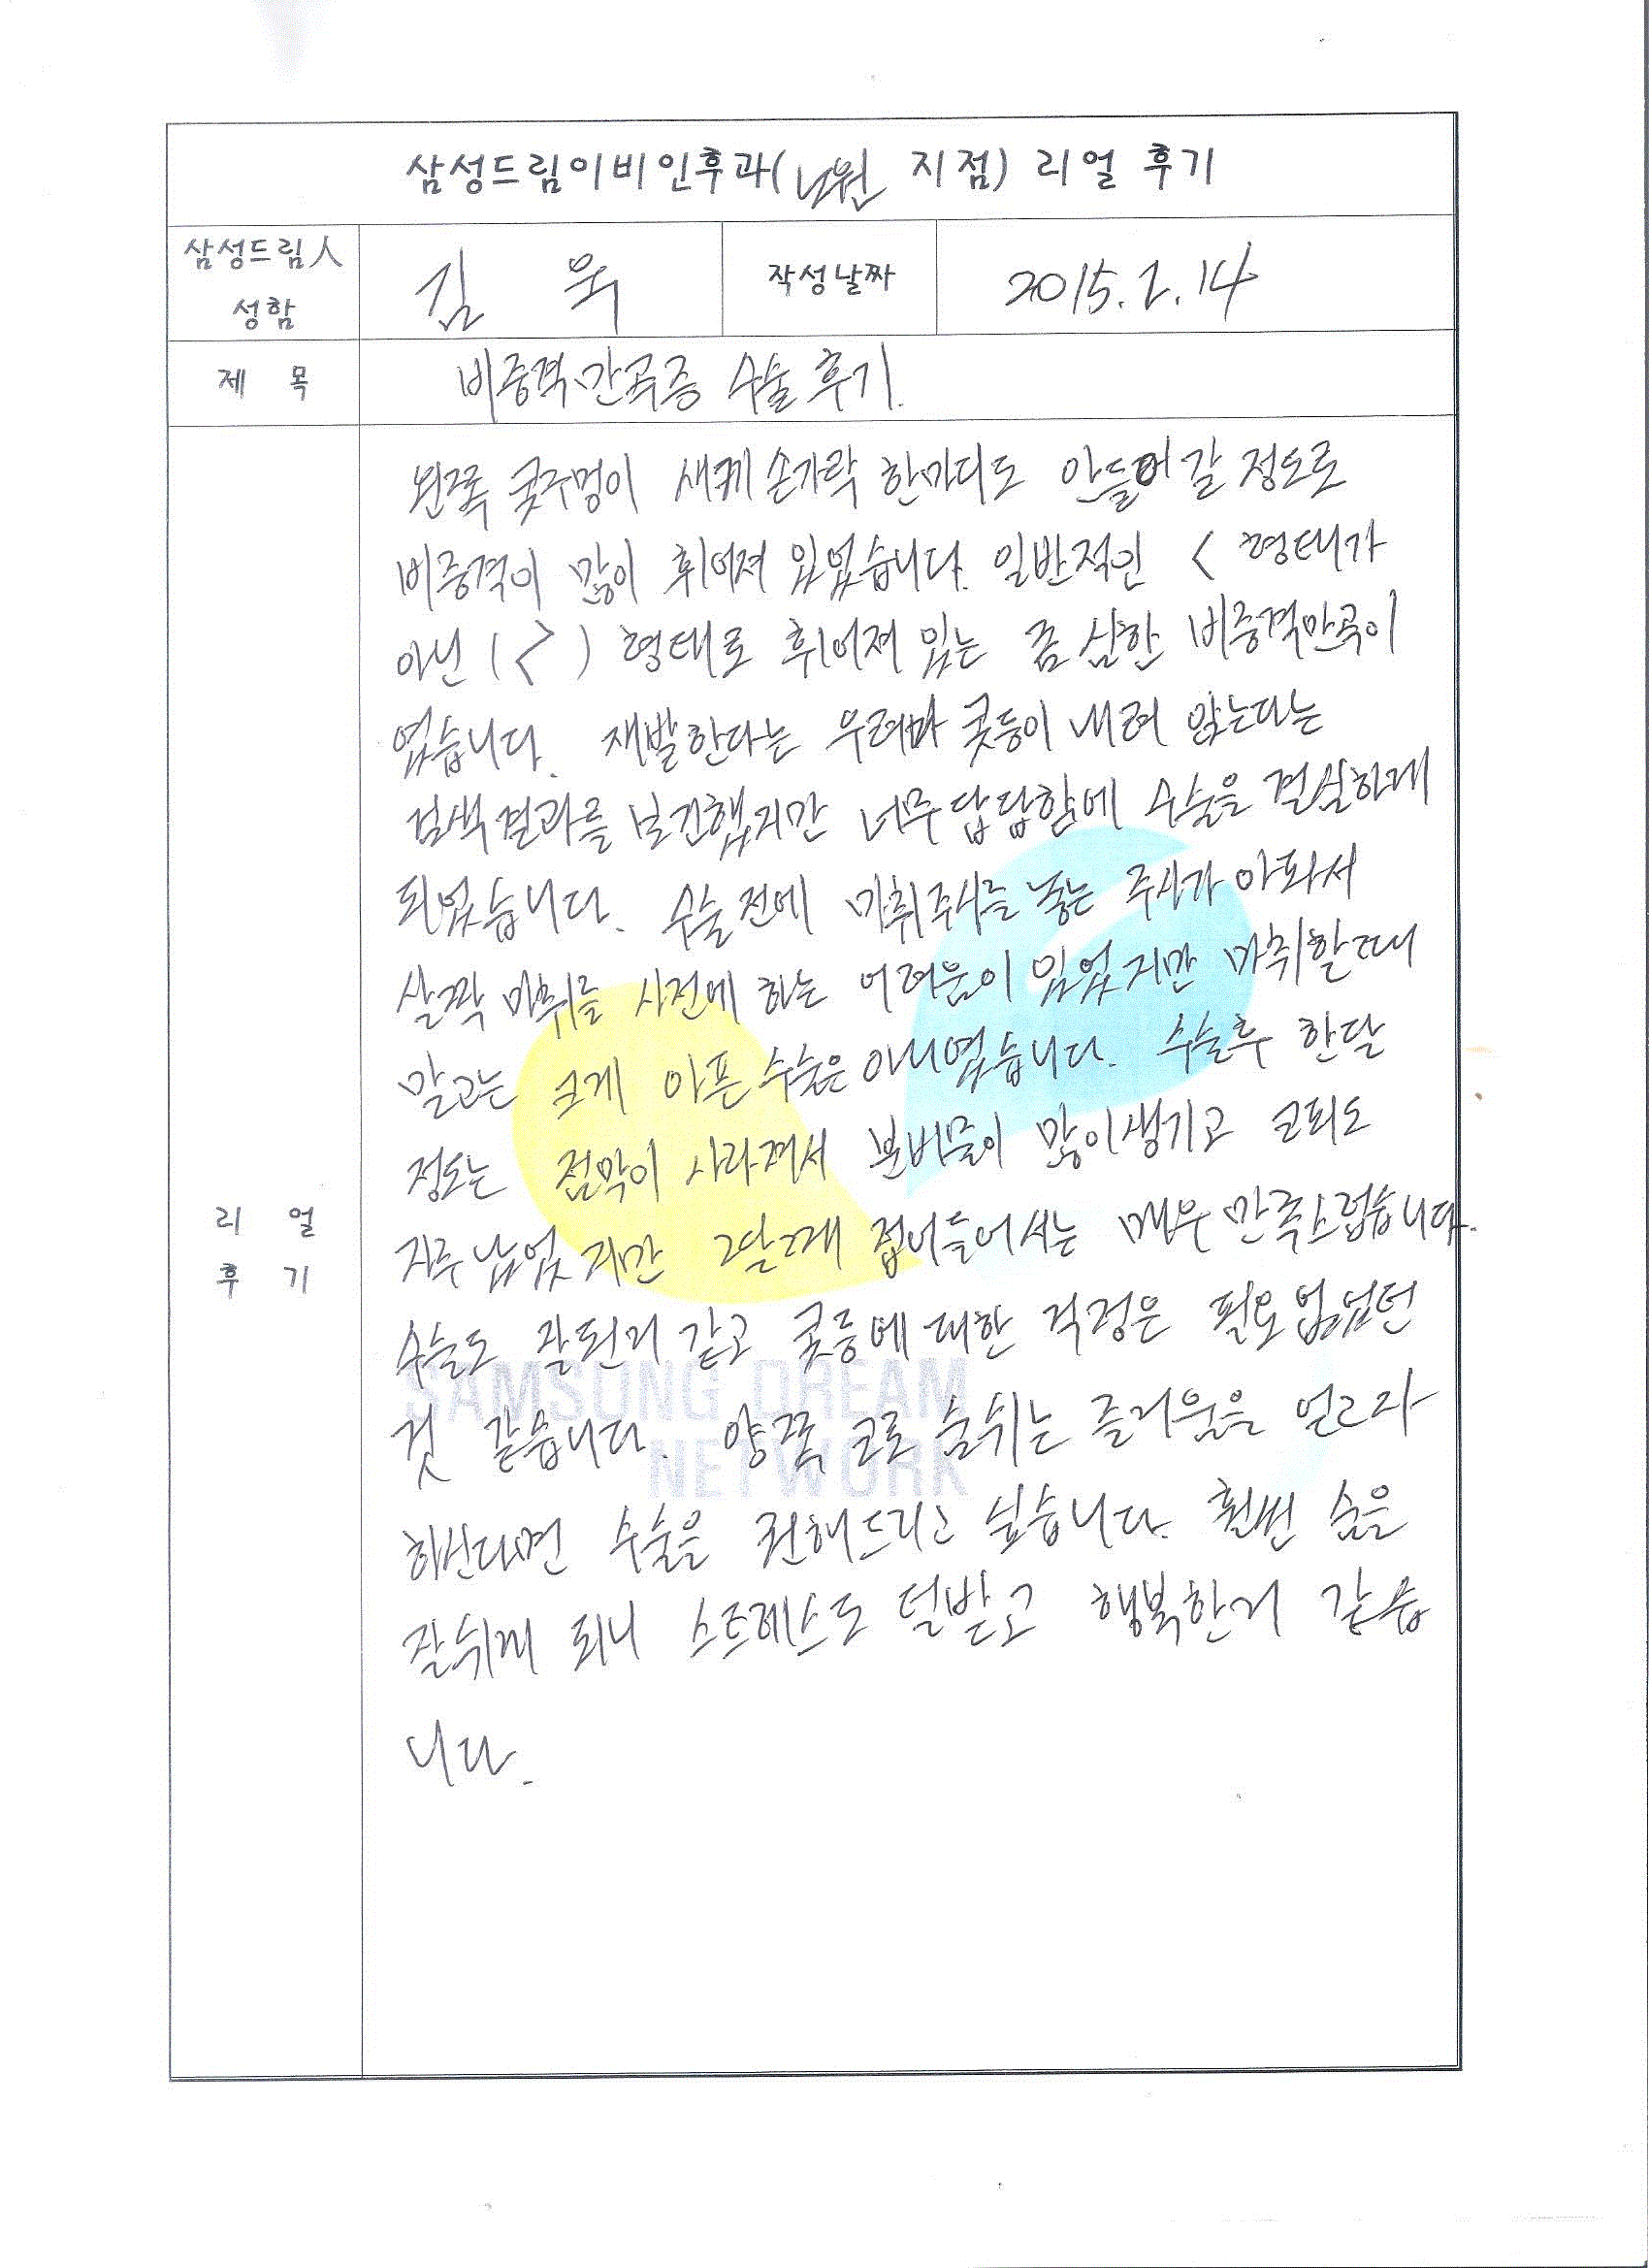 삼성드림이비인후과(노원 지점) 리얼 후기
삼성드림人 성함
김 욱
작성날짜
2015.2.14
제 목
비중격만곡증 수술 후기.
리 얼 후 기
왼쪽 콧구멍이 새끼 손가락 한마디도 안들어갈 정도로
비중격이 많이 휘어져 있었습니다. 일반적인 < 형태가
아닌 ( ) 형태로 휘어져 있는 좀 심한 비중격만곡이
였습니다. 재발한다는 우려와 콧등이 내려 앉는다는
검색결과를 보긴했지만 너무 답답함에 수술을 결심하게
되었습니다. 수술 전에 마취주사를 놓는 주사가 아파서
살짝 마취를 사전에 하는 어려움이 있었지만 마취할때
말고는 크게 아픈 수술은 아니였습니다. 수술후 한달
정도는 점막이 사라져서 분비물이 많이생기고 코피도
자주 났었지만 2달째 접어들어서는 매우 만족스럽습니다.
수술도 잘된거 같고 콧등에 대한 걱정은 필요 없었던
것 같습니다. 양쪽 코로 숨쉬는 즐거움을 얻고자
하신다면 수술을 권해드리고 싶습니다. 훨씬 숨을
잘쉬게 되니 스트레스도 덜받고 행복한거 같습
니다.
SAMSUNG DREAM
NETWORK